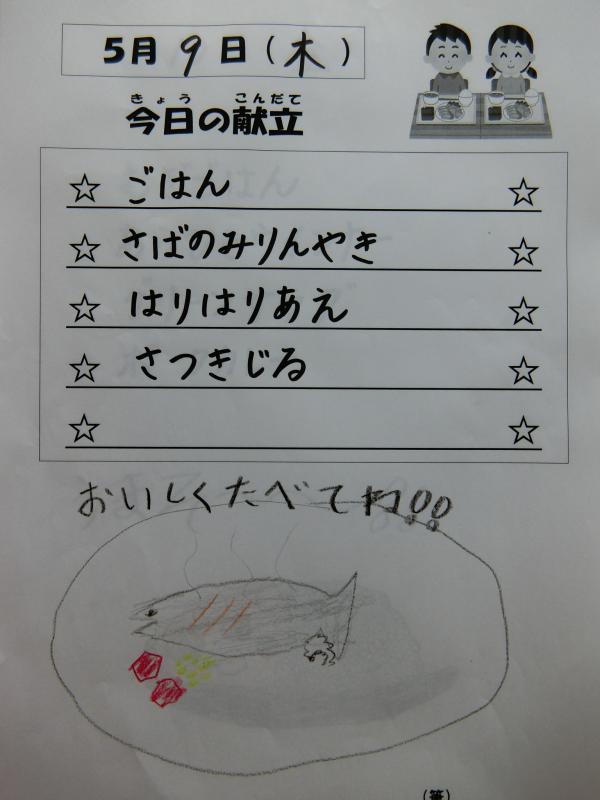 5月9日(木)
きょう こんだて
今日の献立
☆ ごはん ☆
☆ さばのみりんやき ☆
☆ はりはりあえ ☆
☆ さつきじる ☆
☆ ☆
おいしくたべてね!!